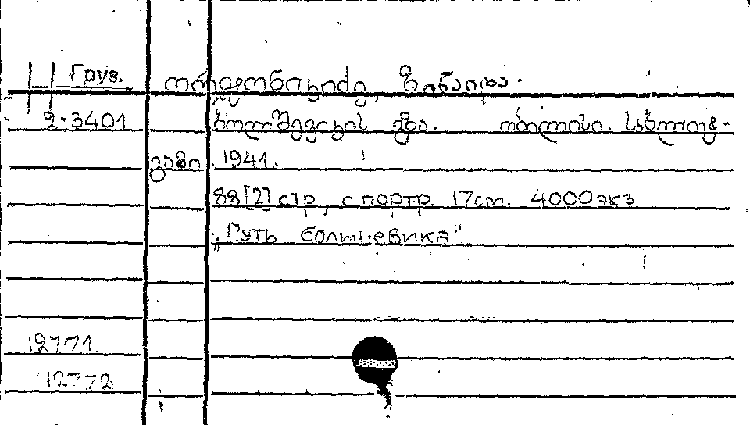 Груз. ორჯონიკიძე, ზინაიდა.
2-3401 ბოლშევიკის გზა. თბილისი. საბლიტ-
გამი. 1941.
88[2] стр, с портр. 17см. 4000 экз
„Путь большевика"
12771
12772